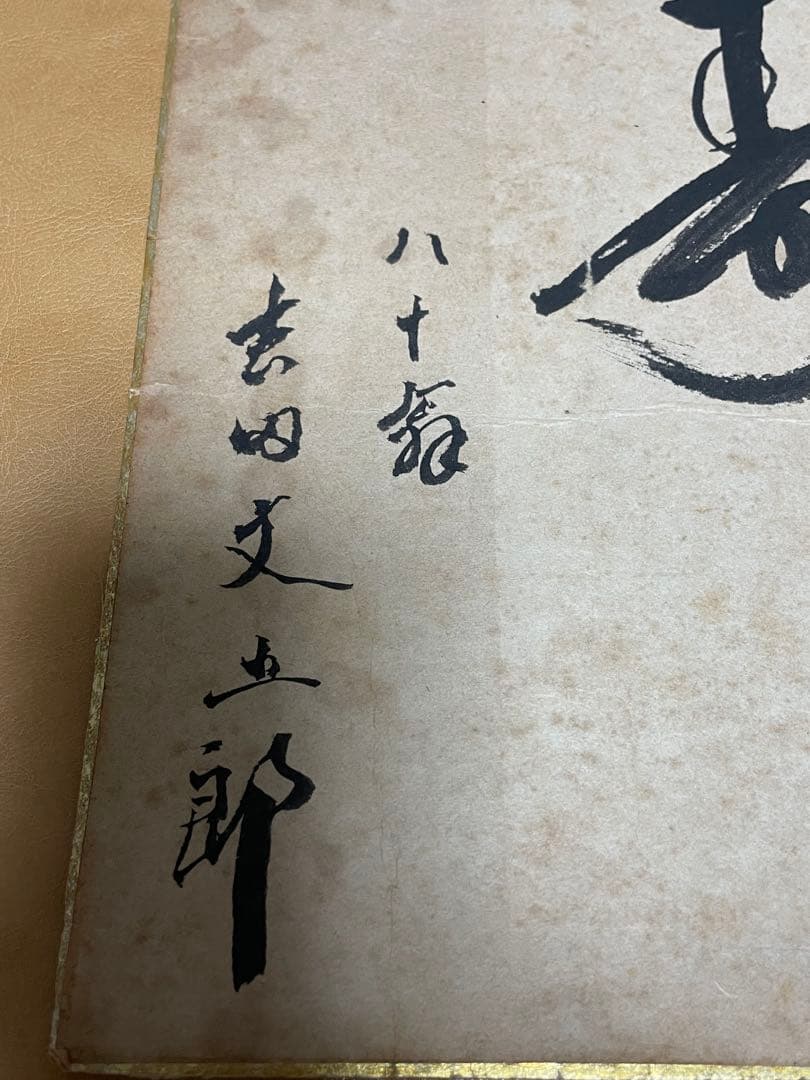 八十翁
吉田文五郎